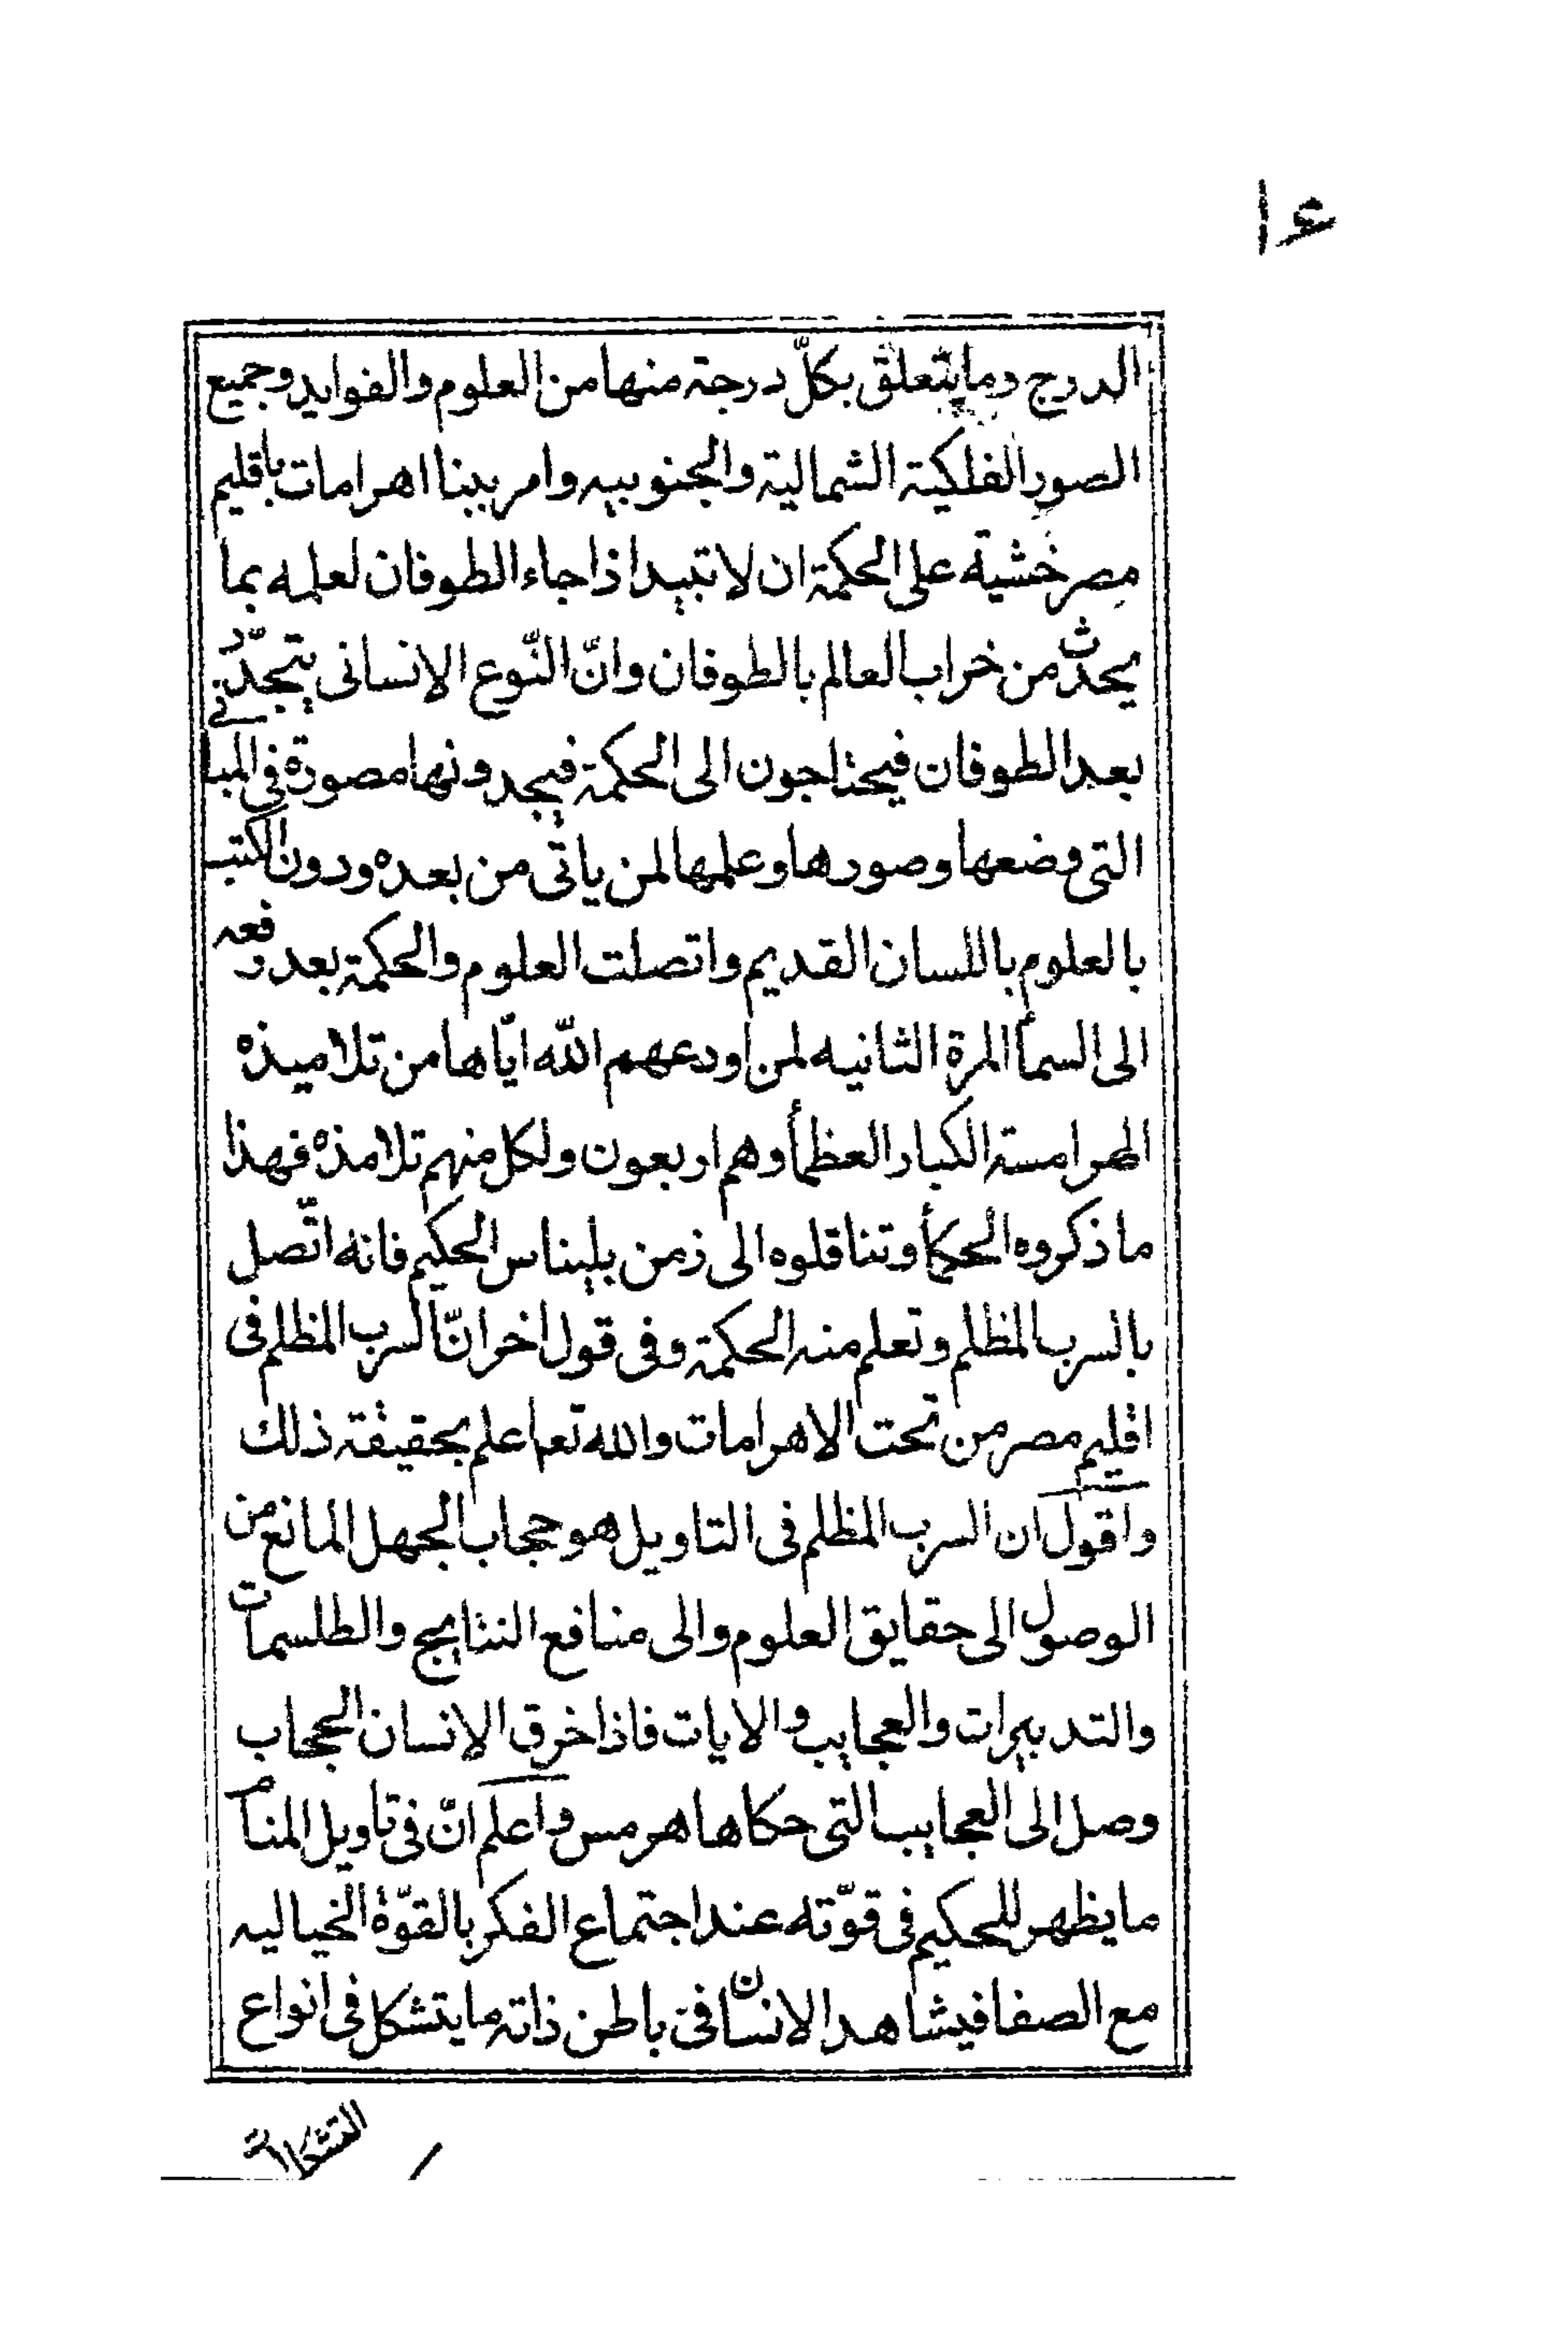 ١٤
الدرج وما يتعلق بكلّ درجة منها من العلوم والفوايد وجميع
الصور الفلكية الشمالية والجنوبيه وامر ببنا اهرامات باقليم
مصر خشية على الحكمة ان لا تبيد اذا جاء الطوفان لعلمه بما
يحدث من خراب العالم بالطوفان وانّ النّوع الانسانى يتجدّد
بعد الطوفان فيحتاجون الى الحكمة فيجدونها مصورة فى المبانى
التى وضعها وصورها وعلمها لمن ياتى من بعده ودون الكتب
بالعلوم باللسان القديم واتصلت العلوم والحكمة بعد رفعه
الى السمأ المرة الثانيه لمن اودعهم اللّه ايّاها من تلاميذه
الهرامسة الكبار العظمأ وهم اربعون ولكل منهم تلامذه فهذا
ما ذكروه الحكمأ وتناقلوه الى زمن بليناس الحكيم فانه اتّصل
بالسرب المظلم وتعلم منه الحكمة وفى قول اخر انّ السرب المظلم فى
اقليم مصر من تحت الاهرامات والله تعا اعلم بحقيقة ذلك
واقول ان السرب المظلم فى التاويل هو حجاب الجهل المانع من
الوصول الى حقايق العلوم والى منافع النتايج والطلسمات
والتدبيرات والعجايب والايات فاذا خرق الانسان الحجاب
وصل الى العجايب التى حكاها هرمس واعلم انّ فى تاويل المنام
ما يظهر للحكيم فى قوّته عند اجتماع الفكر بالقوّة الخياليه
مع الصفا فيشاهد الانسان فى باطن ذاته ما يتشكل فى انواع